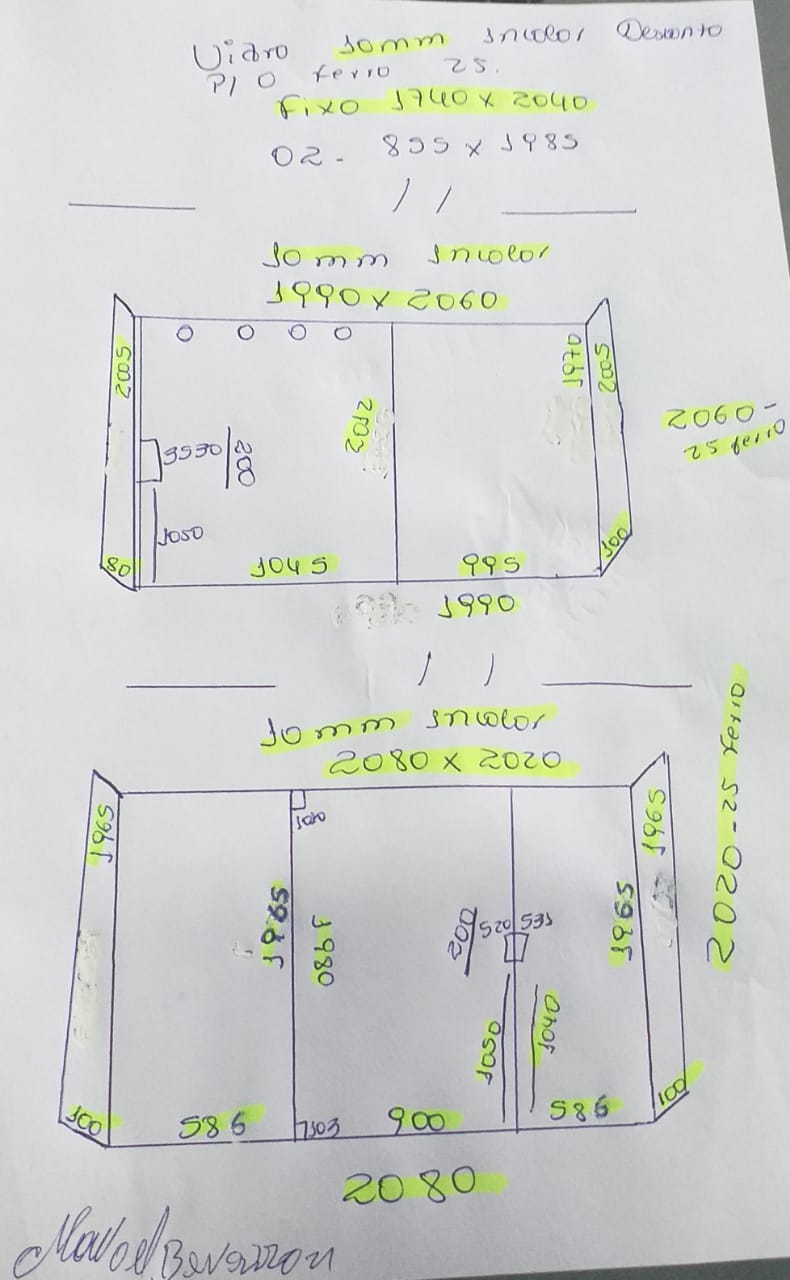 Vidro 10mm Incolor Desconto
P/ O ferro 25.
Fixo 1740 x 2040
02 - 855 x 1985
10mm Incolor
1990 x 2060
2005
1970
2005
2012
2060-
25 ferro
3530/200
1050
80
1045
995
100
1990
10mm Incolor
2080 x 2020
2020-25 ferro
1965
1965
1965
1980
1965
200
520
531
1050
1040
100
586
1103
900
586
100
2080